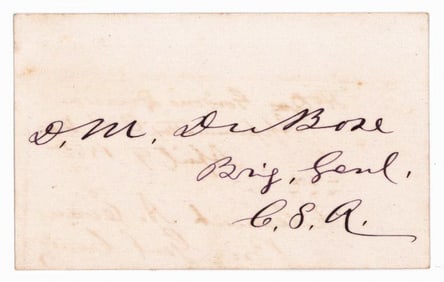 D. M. DuBose
Brig, Genl.
C. S. A.